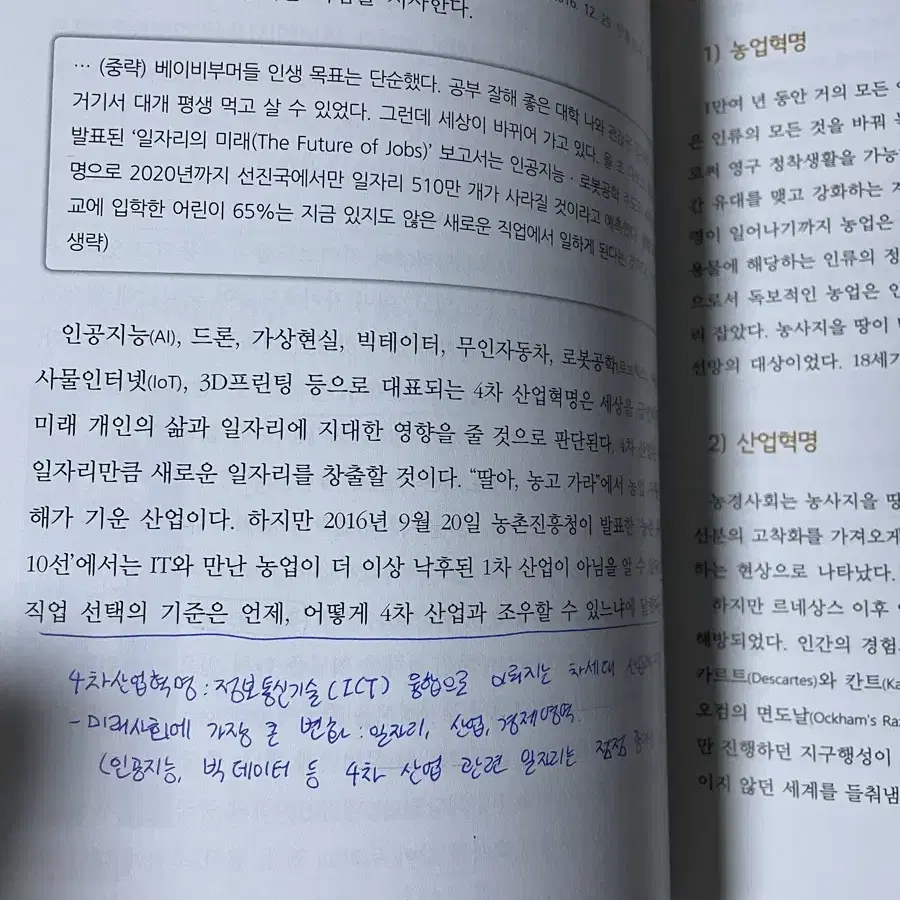 지사한다.
2016. 12. 29
… (중략) 베이비부머들 인생 목표는 단순했다. 공부 잘해 좋은 대학 나와
거기서 대개 평생 먹고 살 수 있었다. 그런데 세상이 바뀌어 가고 있다. 올 초
발표된 ‘일자리의 미래(The Future of Jobs)’ 보고서는 인공지능 · 로봇공학
명으로 2020년까지 선진국에서만 일자리 510만 개가 사라질 것이라고 예측한다.
교에 입학한 어린이 65%는 지금 있지도 않은 새로운 직업에서 일하게 된다는
생략)
인공지능(AI), 드론, 가상현실, 빅테이터, 무인자동차, 로봇공학
사물인터넷(IoT), 3D프린팅 등으로 대표되는 4차 산업혁명은 세상을
미래 개인의 삶과 일자리에 지대한 영향을 줄 것으로 판단된다. 4차 산업
일자리만큼 새로운 일자리를 창출할 것이다. “딸아, 농고 가라”에서 농업
해가 기운 산업이다. 하지만 2016년 9월 20일 농촌진흥청이 발표한
10선’에서는 IT와 만난 농업이 더 이상 낙후된 1차 산업이 아님을 알 수
직업 선택의 기준은 언제, 어떻게 4차 산업과 조우할 수 있느냐에
4차산업혁명 : 정보통신기술(ICT) 융합으로 이뤄지는 차세대
- 미래사회에 가장 큰 변화 : 일자리, 산업, 경제영역.
(인공지능, 빅데이터 등 4차 산업 관련 일자리는 점점
1) 농업혁명
1만여 년 동안 거의 모든
은 인류의 모든 것을 바꿔
로써 영구 정착생활을 가능
간 유대를 맺고 강화하는
명이 일어나기까지 농업은
용물에 해당하는 인류의 정
으로서 독보적인 농업은
리 잡았다. 농사지을 땅이
선망의 대상이었다. 18세기
2) 산업혁명
농경사회는 농사지을 땅
신분의 고착화를 가져오게
하는 현상으로 나타났다.
하지만 르네상스 이후
해방되었다. 인간의 경험
카르트(Descartes)와 칸트(Ka
오컴의 면도날(Ockham's Raz
만 진행하던 지구행성이
이지 않던 세계를 들춰냄